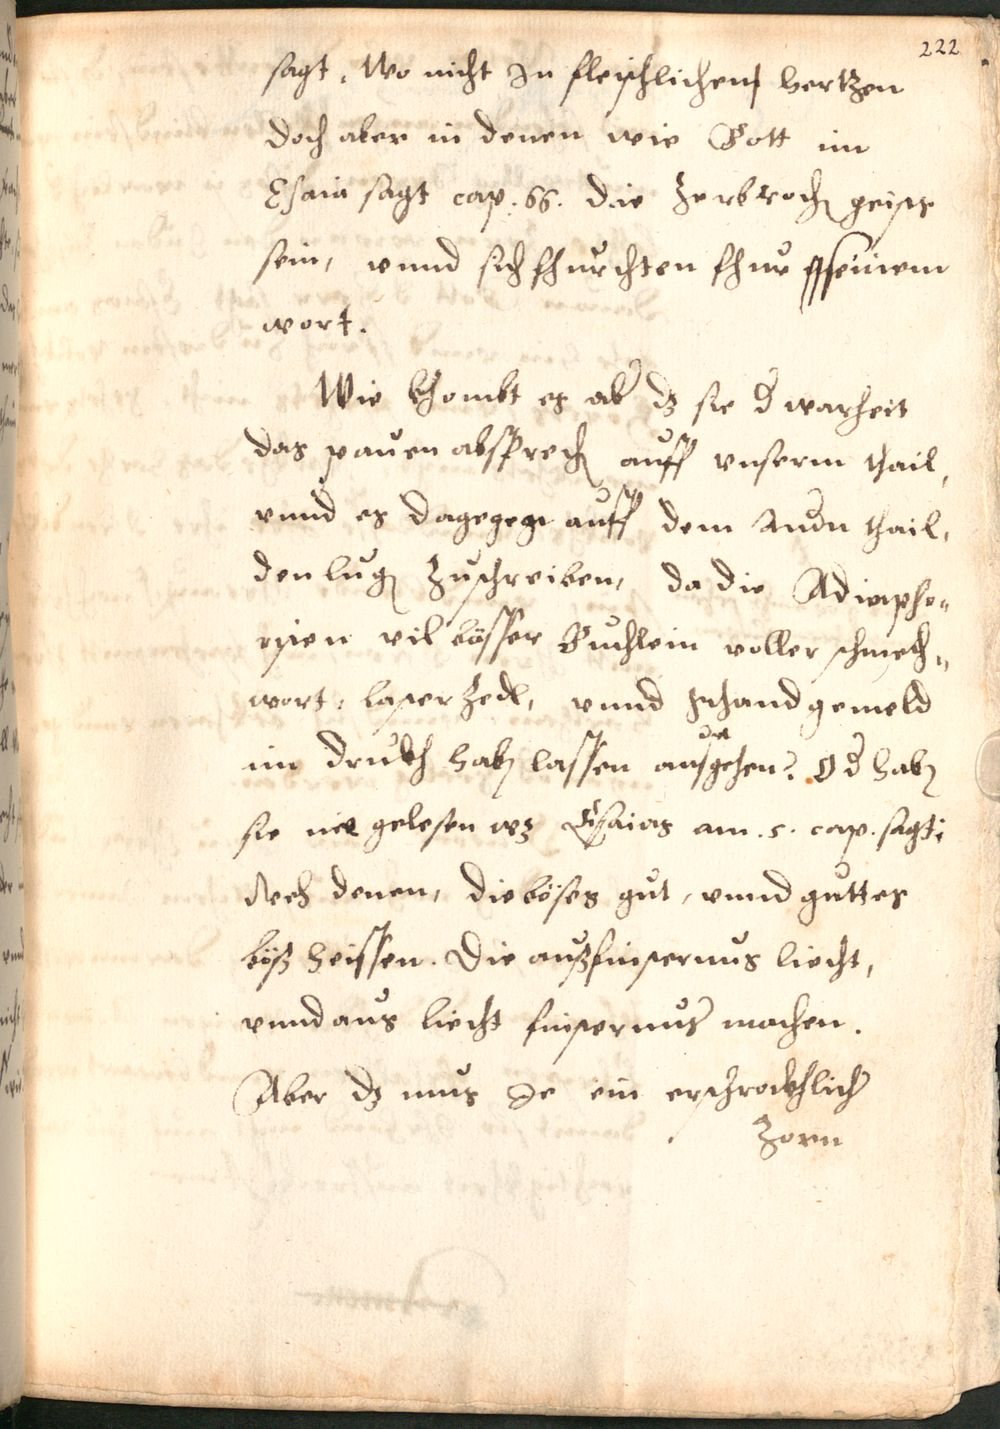 222
sagt, Wo nicht In fleischlichens hertzen
doch aber in denen wie Gott im
Esaia sagt cap. 66. die Zerbroch geists
sein, vnnd sich fhurchten fhur seinem
wort.
Wie khombt es ab dz sie d warheit
das absprech auff vnserm thail,
vnnd es dagegen auff dem andn thail,
den lug Zuschreiben, da die Adiapho-
risten vil bösser Buchlein voller schmech-
wort, laster Zedl, vnnd schandgemeld
im drukh hab lassen ausgehen? Od hab
sie nie gelesen wz Esaias am .5. cap. sagt:
Weh denen, die böses gut, vnnd guttes
böß heissen. Die auß finsternus liecht,
vnnd aus liecht finsternus machen.
Aber dz mus Je ein erschrockhlich
Zorn